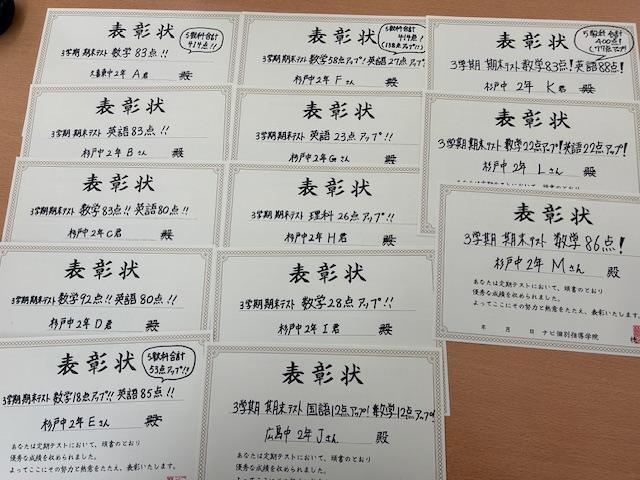 表彰状
5教科合計
414点!!
3学期期末テスト 数学 83点!!
久喜東中2年 A君 殿
表彰状
3学期期末テスト 英語83点!!
杉戸中2年 Bさん 殿
表彰状
3学期期末テスト 数学83点!! 英語80点!!
杉戸中2年 C君 殿
表彰状
3学期期末テスト 数学92点!! 英語80点!!
杉戸中2年 D君 殿
表彰状
5教科合計
53点アップ!!
3学期期末テスト 数学18点アップ!! 英語85点!!
杉戸中2年 Eさん 殿
あなたは定期テストにおいて、頭書のとおり
優秀な成績を収められました。
よってここにその努力と熱意をたたえ、表彰いたします。
表彰状
5教科合計
414点!
(138点アップ!!)
3学期期末テスト 数学58点アップ! 英語27点アップ!
杉戸中2年 Fさん 殿
表彰状
3学期期末テスト 英語 23点アップ!!
杉戸中2年 Gさん 殿
表彰状
3学期期末テスト 理科 26点アップ!!
杉戸中2年 H君 殿
表彰状
3学期期末テスト 数学28点アップ!!
杉戸中2年 I君 殿
表彰状
3学期 期末テスト 国語12点アップ! 数学12点アップ!
広島中 2年 Jさん 殿
あなたは定期テストにおいて、頭書のとおり
優秀な成績を収められました。
よってここにその努力と熱意をたたえ、表彰いたします。
表彰状
5教科合計
400点!
(77点アップ)
3学期 期末テスト 数学83点! 英語88点!
杉戸中 2年 K君 殿
表彰状
3学期 期末テスト 数学22点アップ! 英語22点アップ!
杉戸中 2年 Lさん 殿
あなたは定期テストにおいて、頭書のとおり
表彰状
3学期 期末テスト 数学 86点!
杉戸中 2年 Mさん 殿
あなたは定期テストにおいて、頭書のとおり
優秀な成績を収められました。
よってここにその努力と熱意をたたえ、表彰いたします。
年 月 日 ナビ個別指導学院